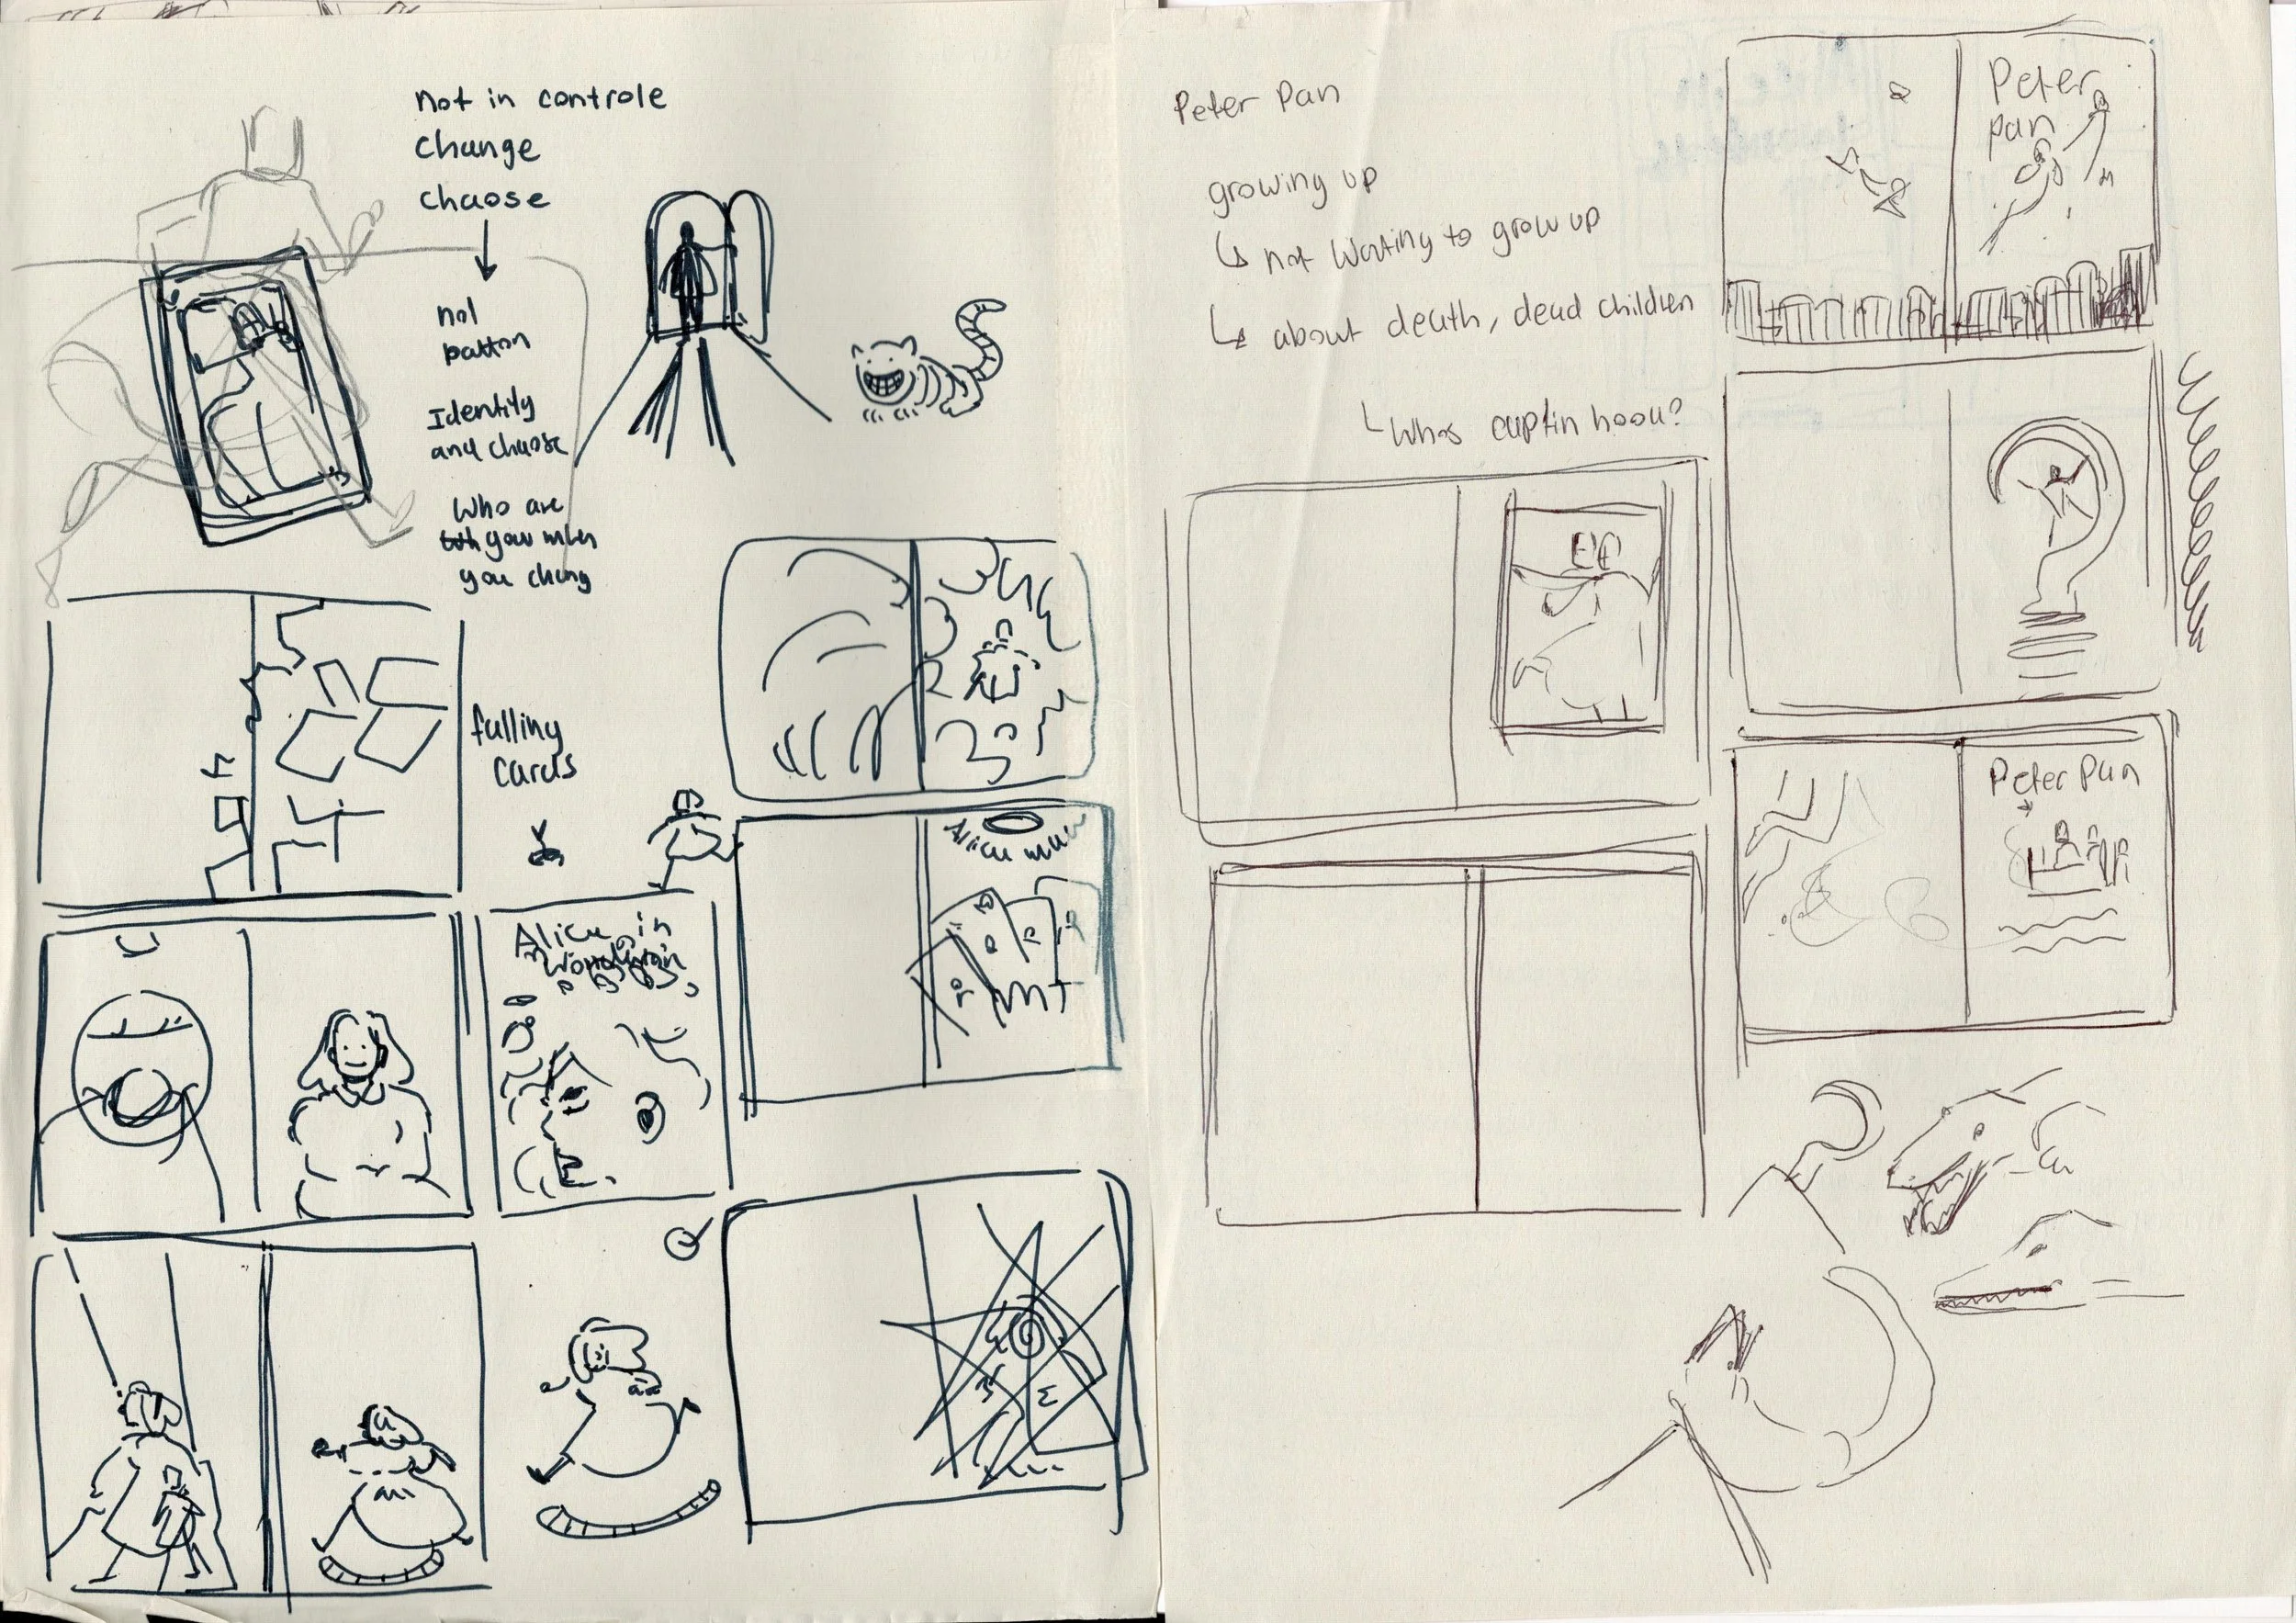 not in controle
change
chaose
not
patton
Identity
and chaose
Who are
you when
you chang
falling
cards
Alice in
Alice
Peter Pan
growing up
not wanting to grow up
about death, dead children
Whos captin hook?
Peter
pan
Peter Pan